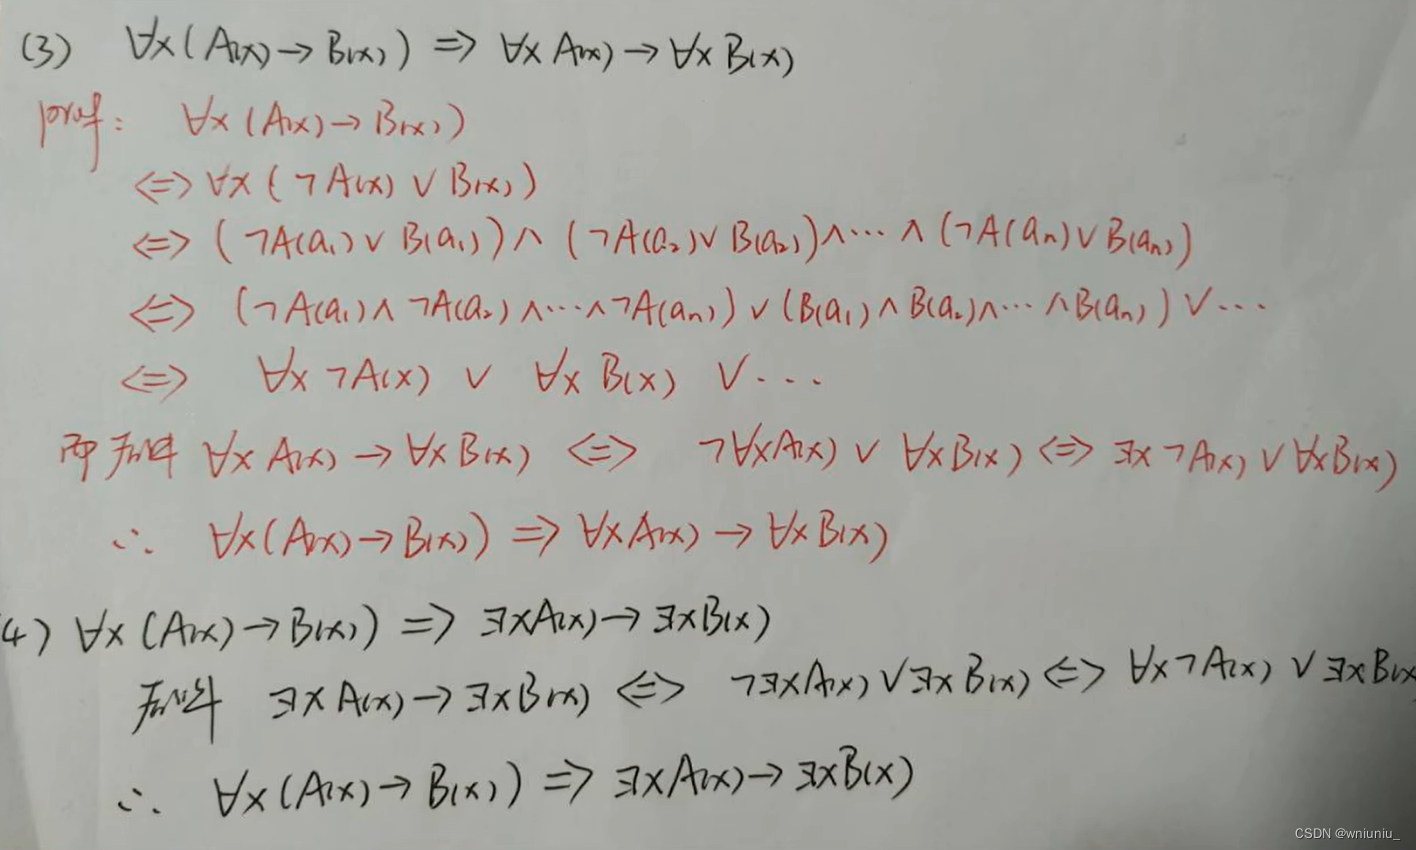 (3) ∀x(A(x)→B(x)) ⇒ ∀x A(x)→∀x B(x)
proof: ∀x(A(x)→B(x))
⇔ ∀x(¬A(x)∨B(x))
⇔ (¬A(a₁)∨B(a₁))∧(¬A(a₂)∨B(a₂))∧…∧(¬A(aₙ)∨B(aₙ))
⇔ (¬A(a₁)∧¬A(a₂)∧…∧¬A(aₙ))∨(B(a₁)∧B(a₂)∧…∧B(aₙ))∨…
⇔ ∀x¬A(x) ∨ ∀x B(x) ∨…
∀x A(x)→∀x B(x) ⇔ ¬∀xA(x)∨∀xB(x) ⇔ ∃x¬A(x)∨∀xB(x)
∴ ∀x(A(x)→B(x)) ⇒ ∀xA(x)→∀xB(x)
4) ∀x(A(x)→B(x)) ⇒ ∃xA(x)→∃xB(x)
∃xA(x)→∃xB(x) ⇔ ¬∃xA(x)∨∃xB(x) ⇔ ∀x¬A(x)∨∃xB(x
∴ ∀x(A(x)→B(x)) ⇒ ∃xA(x)→∃xB(x)
CSDN @wniuniu_